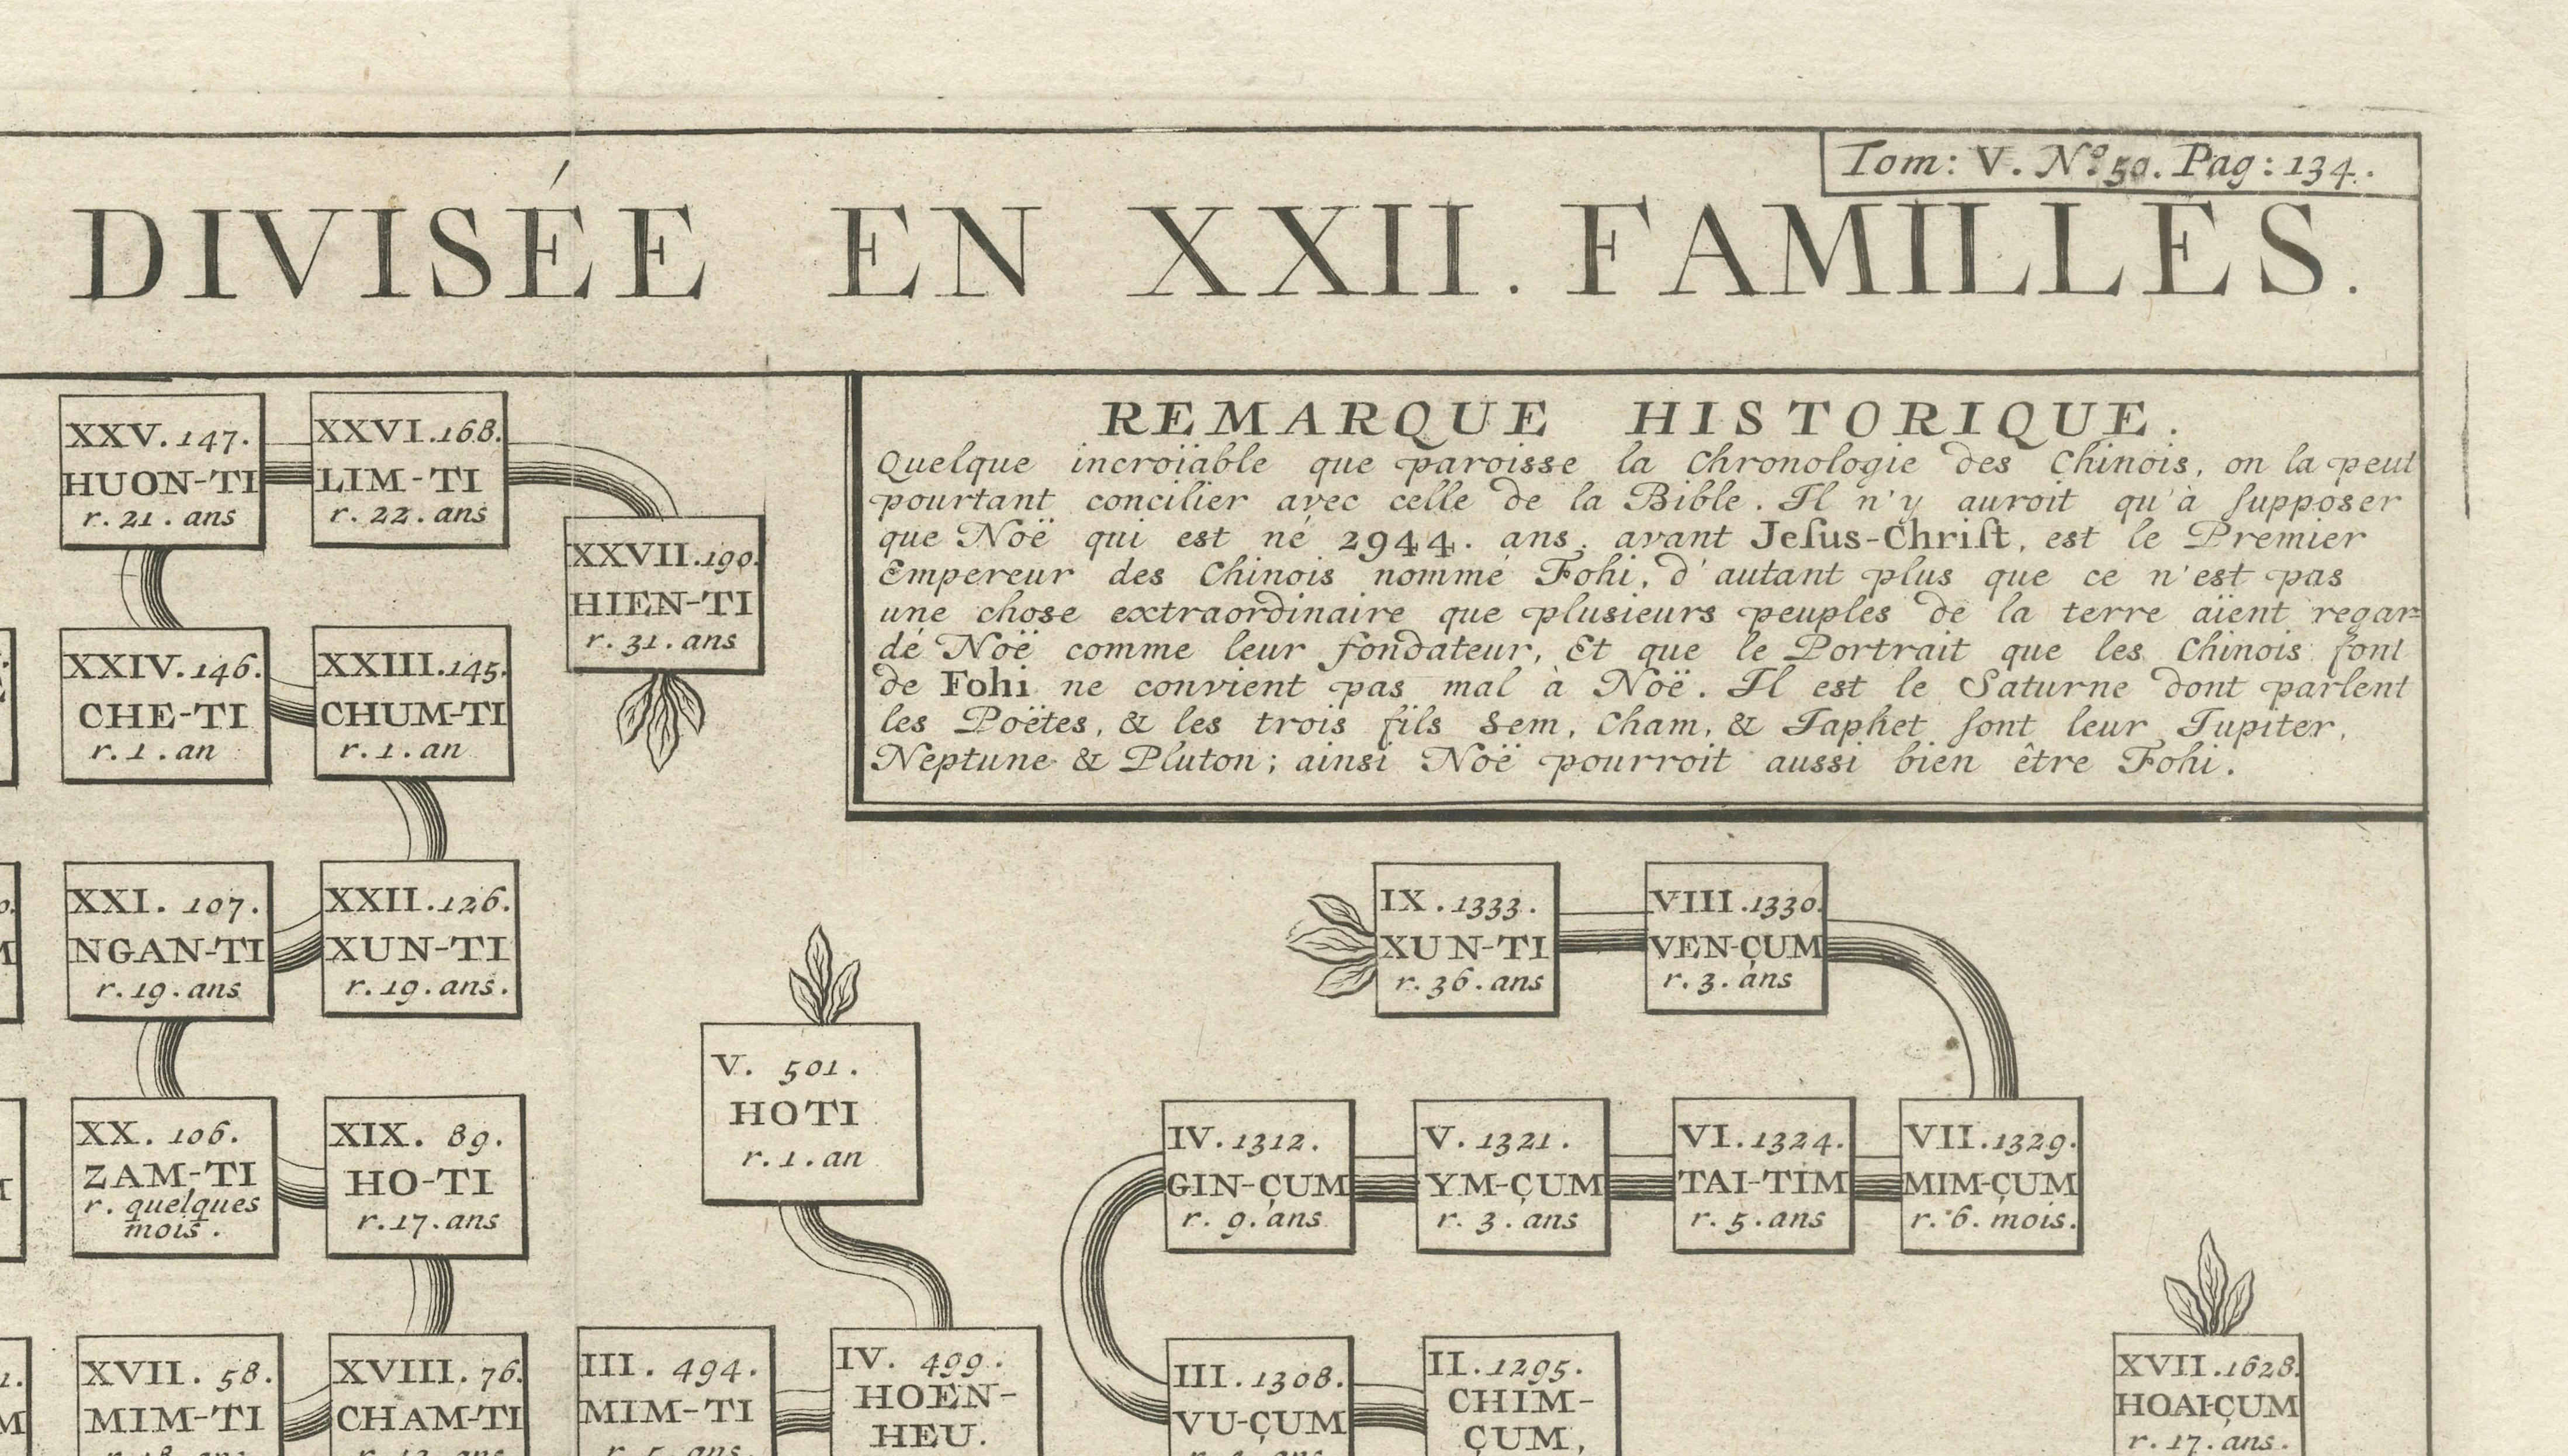 Tom: V. Nº 50. Pag: 134.
DIVISÉE EN XXII. FAMILLES.
REMARQUE HISTORIQUE.
Quelque incroiable que paroisse la Chronologie des Chinois, on la peut
pourtant concilier avec celle de la Bible. Il n'y auroit qu'à ſupposer
que Noë qui est né 2944. ans. avant Jeſus-Chriſt, est le Premier
Empereur des Chinois nommé Fohi, d'autant plus que ce n'est pas
une chose extraordinaire que plusieurs peuples de la terre aïent regar=
dé Noë comme leur fondateur, Et que le Portrait que les Chinois font
de Fohi ne convient pas mal à Noë. Il est le Saturne dont parlent
les Poëtes, & les trois fils Sem, Cham, & Japhet ſont leur Jupiter,
Neptune & Pluton; ainsi Noë pourroit aussi bien être Fohi.
XXV. 147.
HUON-TI
r. 21. ans
XXVI. 168.
LIM-TI
r. 22. ans
XXVII. 190.
HIEN-TI
r. 31. ans
XXIV. 146.
CHE-TI
r. 1. an
XXIII. 145.
CHUM-TI
r. 1. an
XXI. 107.
NGAN-TI
r. 19. ans
XXII. 126.
XUN-TI
r. 19. ans.
XX. 106.
ZAM-TI
r. quelques
mois.
XIX. 89.
HO-TI
r. 17. ans
XVII. 58.
MIM-TI
XVIII. 76.
CHAM-TI
V. 501.
HOTI
r. 1. an
III. 494.
MIM-TI
r. 5. ans.
IV. 499.
HOEN-
HEU.
IX. 1333.
XUN-TI
r. 36. ans
VIII. 1330.
VEN-ÇUM
r. 3. ans
IV. 1312.
GIN-ÇUM
r. 9. ans
V. 1321.
YM-ÇUM
r. 3. ans
VI. 1324.
TAI-TIM
r. 5. ans
VII. 1329.
MIM-ÇUM
r. 6. mois.
III. 1308.
VU-ÇUM
II. 1295.
CHIM-
ÇUM,
XVII. 1628.
HOAI-ÇUM
r. 17. ans.